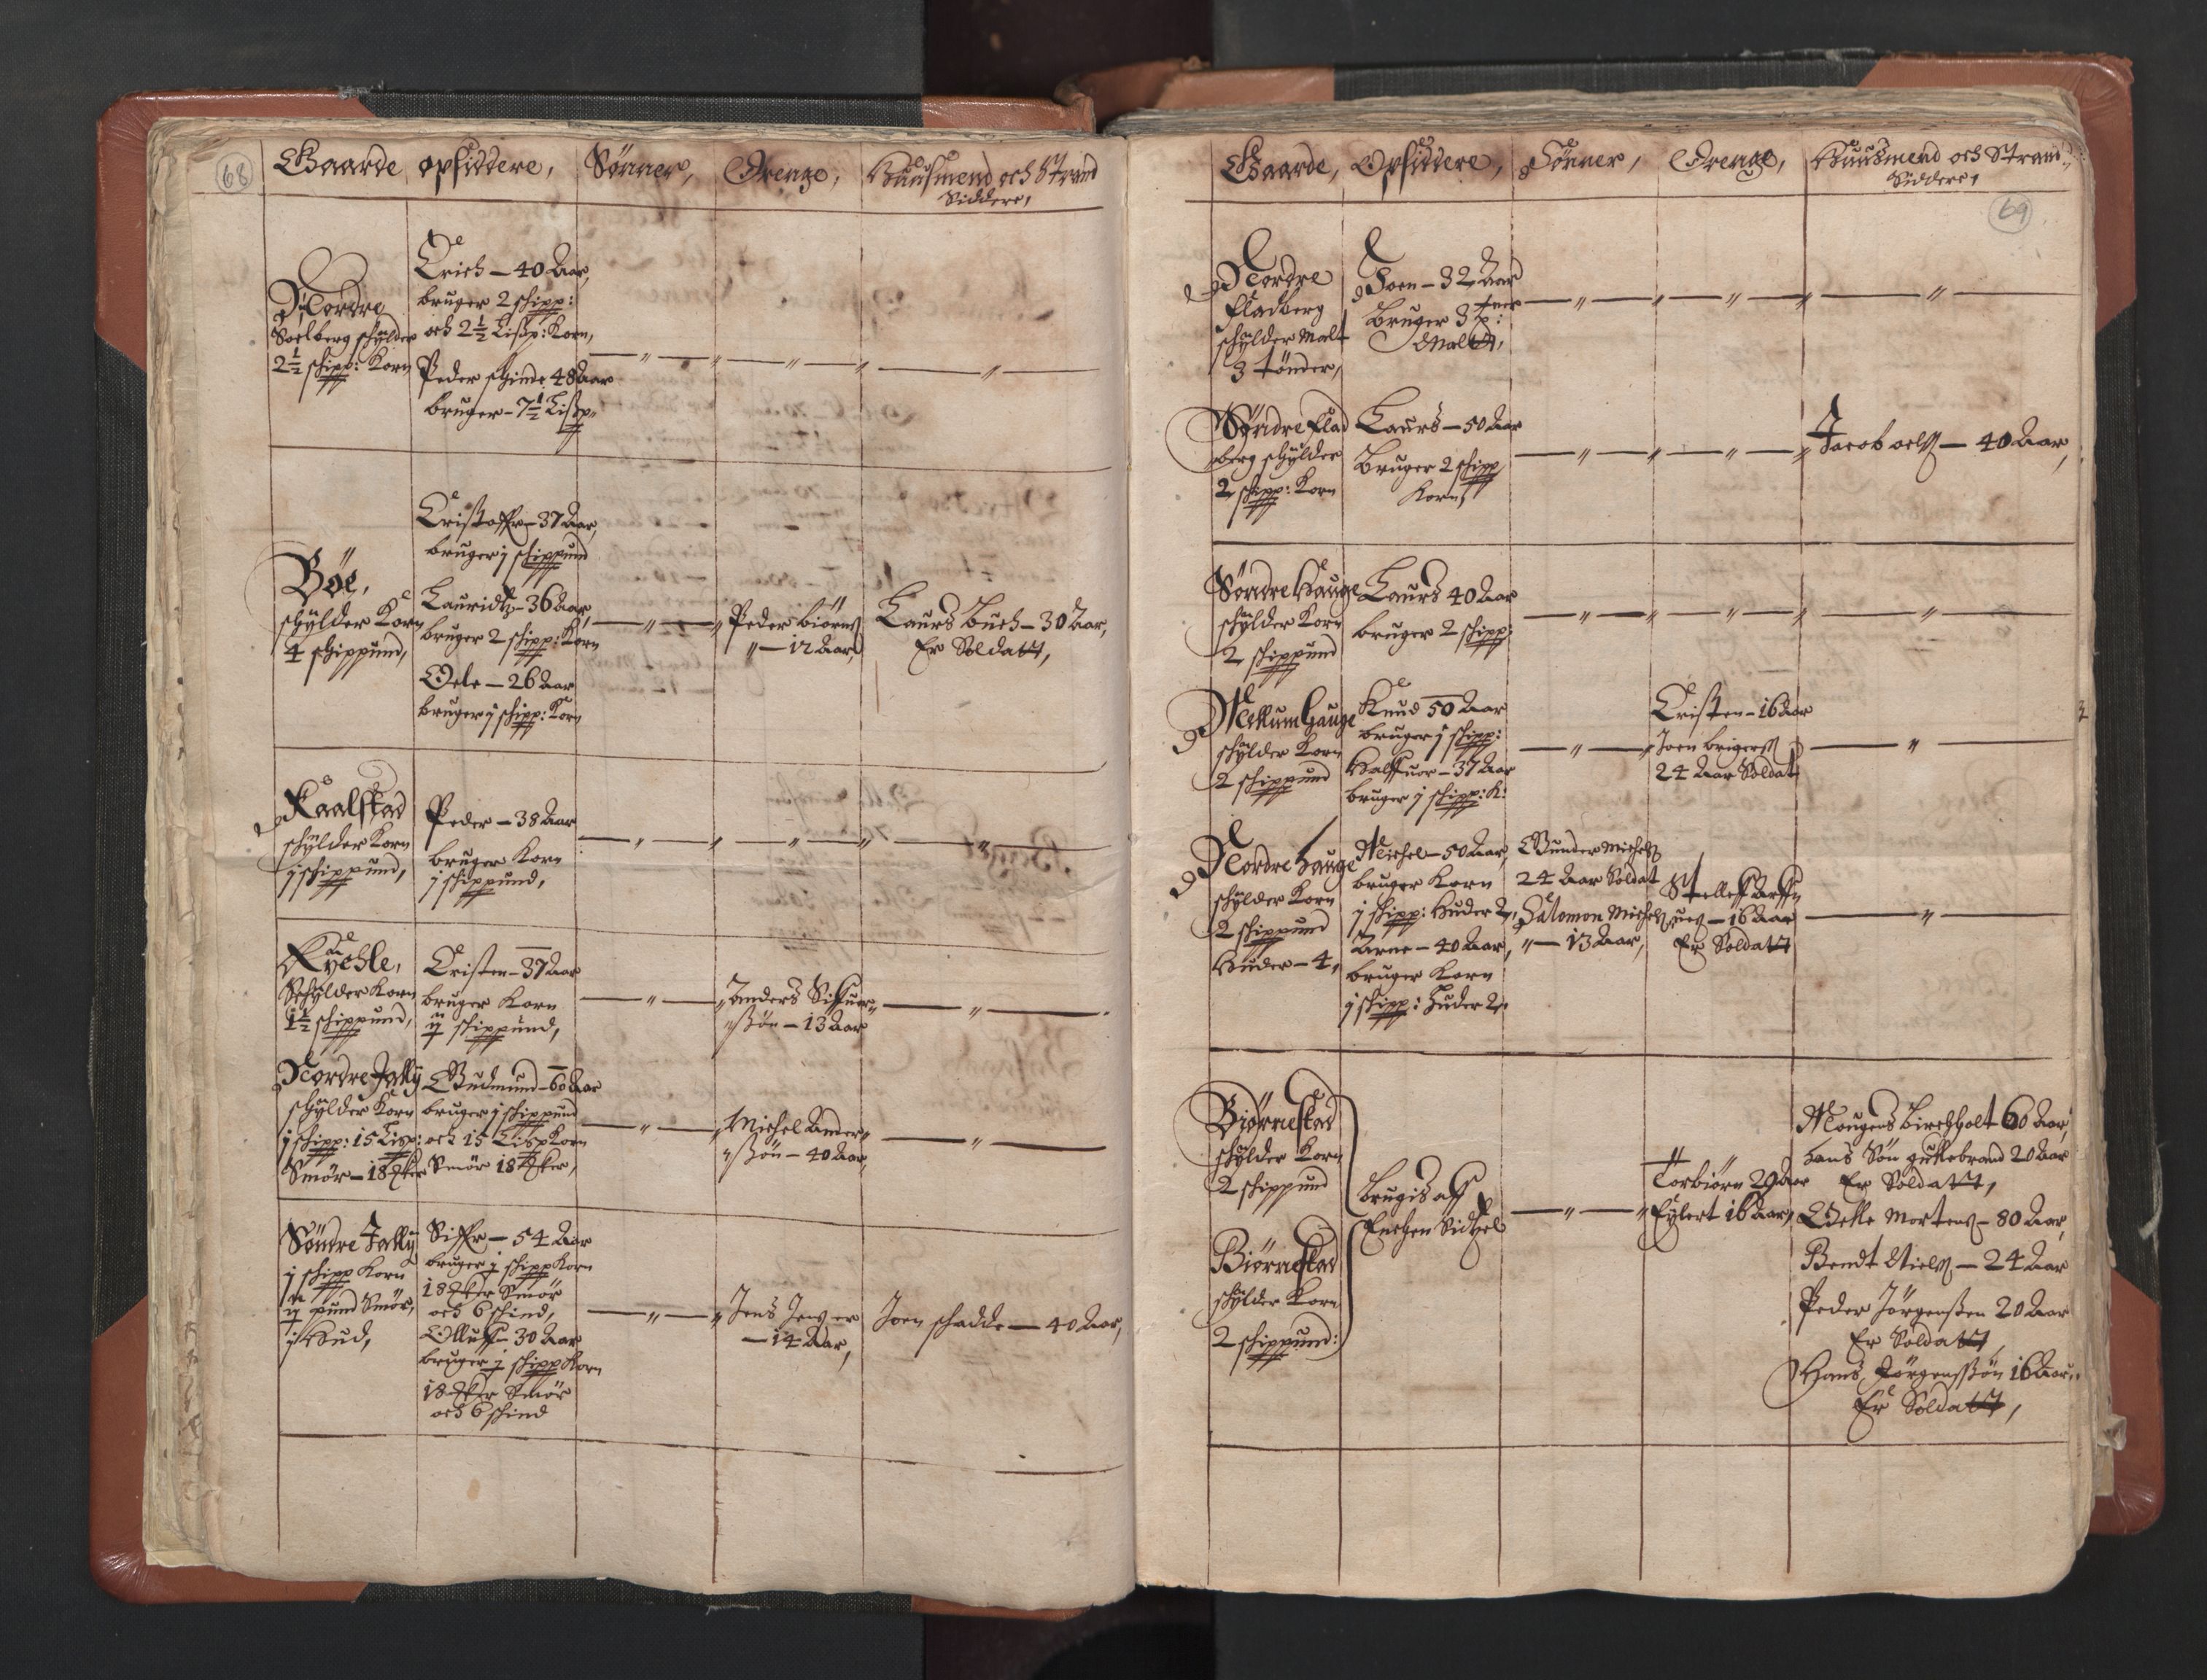 68
Gaarde opsiddere, Sønner, Drenge, Huusmend och Strand
Siddere,
Nordre
Soelberg schylder
2½ schipp: Korn
Erich — 40 Aar,
bruger 2 schipp:
och 2½ Lispp: Korn,
Peder schinde 48 Aar
bruger — 7½ Lispp
Bøe,
schylder Korn
4 schippund,
Cristoffr — 37 Aar,
bruger j schippund
Lauridtz — 36 Aar,
bruger 2 schipp: Korn
Oele — 26 Aar
bruger j schipp: Korn
Peder biørns
— 12 Aar,
Laurs Buch — 30 Aar,
Er Soldatt,
Kaalstad
schylder Korn
j schippund,
Peder — 38 Aar
bruger Korn
j schippund,
Schylder Korn
1½ schippund,
Cristen — 37 Aar
bruger Korn
schippund,
Anders Siffuer
ssøn — 13 Aar
Nordre
schylder Korn
j schipp: 15 Lisp:
Smør — 18
Gudmund — 60 Aar
bruger j schippund
och 15 Lisp Korn
Smør 18
Michel Ander
ssøn — 40 Aar,
Søndre
j schipp Korn
pund Smør,
j Hud,
Siffr — 54 Aar
bruger schipp Korn
18 Smør
och 6 schind,
Olluff — 30 Aar
bruger schipp Korn
18 Smør
och 6 schind
Jens
— 14 Aar,
Joen schadde — 40 Aar,
Gaarde, Opsiddere, Sønner, Drenge, Huusmend och Strand
Siddere,
69
Nordre
Fladberg
schylder Malt
3 tønder,
Joen — 32 Aar
Bruger 3
Maltt,
Syndre Flad
berg schylder
2 schipp: Korn
Laurs — 50 Aar
Bruger 2 schipp
Korn,
Jacob oels — 40 Aar,
Søndre Hauge
schylder Korn
2 schippund
Laurs 40 Aar
bruger 2 schipp:
Mellum Hauge
schylder Korn
2 schippund
Knud 50 Aar
bruger j schipp:
Halffuor — 37 Aar
bruger j schipp: K:
Cristen — 16 Aar
Joen
24 Aar Soldat
Nordre Hauge
schylder Korn
2 schippund
Huder — 4,
Michel — 50 Aar,
bruger Korn
j schipp: Huder 2,
Arne — 40 Aar,
bruger Korn
j schipp: Huder 2,
Gunder Michels
24 Aar Soldat
Salomon Michels
— 13 Aar,
— 16 Aar
Er Soldatt
Biørnestad
schylder Korn
2 schippund
Biørnestad
schylder Korn
2 schippund:
brugis aff
Enchen Sidtzel
Torbiørn 29 Aar
Eylert 16 Aar,
Mougens Birchholt 60 Aar,
hans Søn gullebrand 20 Aar
Er Soldatt,
Mortens — 80 Aar,
Bendt Niels — 24 Aar
Peder Jørgenssen 20 Aar
Er Soldatt,
Hans Jørgenssøn 16 Aar,
Er Soldatt,